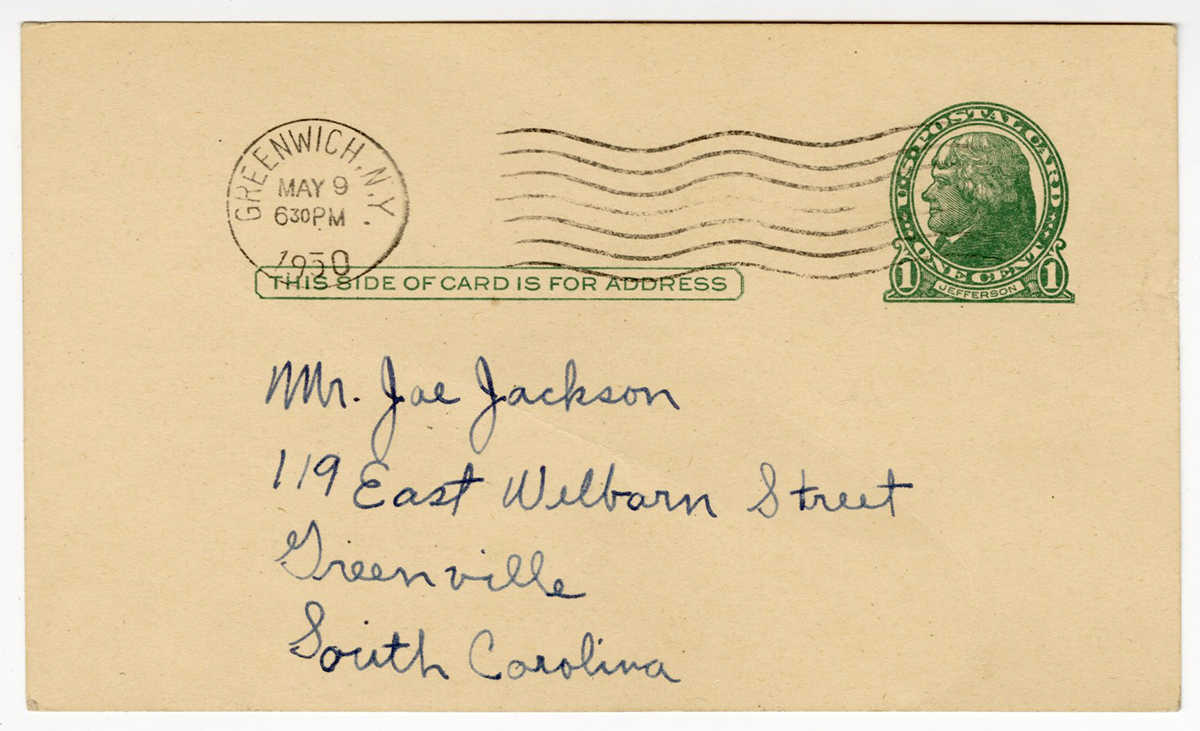 GREENWICH, N.Y.
MAY 9
630PM
1950
U.S. POSTAL CARD
ONE CENT
1 JEFFERSON 1
THIS SIDE OF CARD IS FOR ADDRESS
Mr. Joe Jackson
119 East Welbarn Street
Greenville
South Carolina